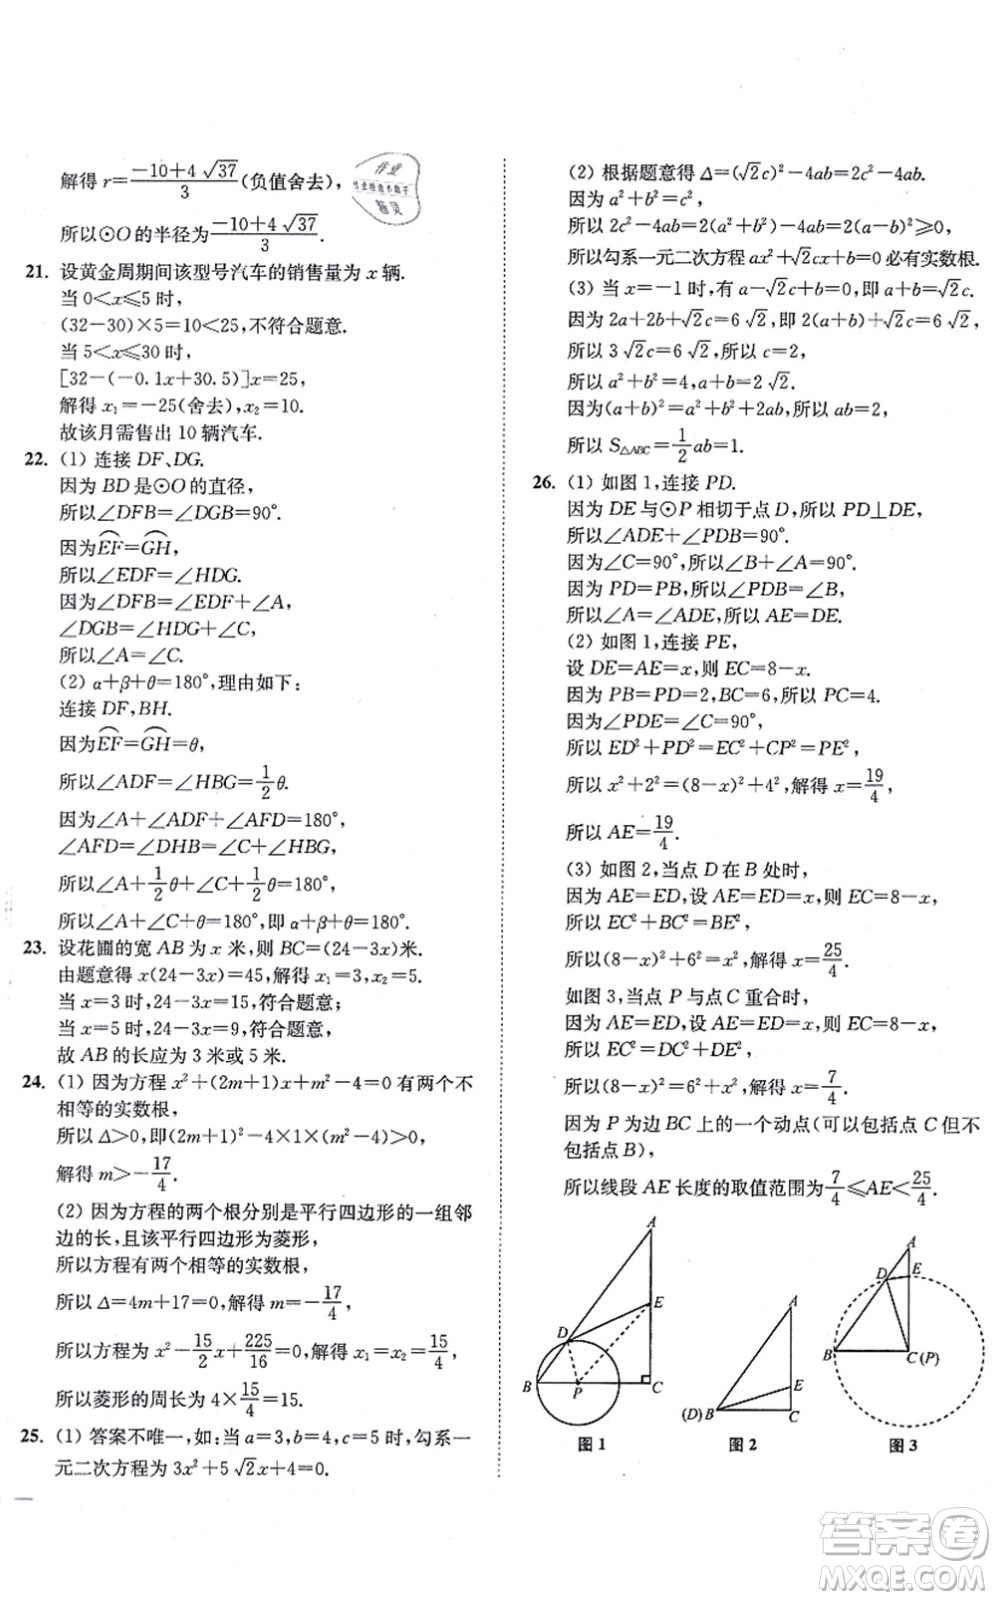 解得 r=\frac{-10+4\sqrt{37}}{3}(负值舍去),
所以⊙O 的半径为\frac{-10+4\sqrt{37}}{3}.
21. 设黄金周期间该型号汽车的销售量为 x 辆.
当 0<x≤5 时,
(32-30)×5=10<25,不符合题意.
当 5<x≤30 时,
[32-(-0.1x+30.5)]x=25,
解得 x₁=-25(舍去),x₂=10.
故该月需售出 10 辆汽车.
22. (1) 连接 DF、DG.
因为 BD 是⊙O 的直径,
所以∠DFB=∠DGB=90°.
因为\overset{⌢}{EF}=\overset{⌢}{GH},
所以∠EDF=∠HDG.
因为∠DFB=∠EDF+∠A,
∠DGB=∠HDG+∠C,
所以∠A=∠C.
(2) α+β+θ=180°,理由如下:
连接 DF,BH.
因为\overset{⌢}{EF}=\overset{⌢}{GH}=θ,
所以∠ADF=∠HBG=\frac{1}{2}θ.
因为∠A+∠ADF+∠AFD=180°,
∠AFD=∠DHB=∠C+∠HBG,
所以∠A+\frac{1}{2}θ+∠C+\frac{1}{2}θ=180°,
所以∠A+∠C+θ=180°,即 α+β+θ=180°.
23. 设花圃的宽 AB 为 x 米,则 BC=(24-3x)米.
由题意得 x(24-3x)=45,解得 x₁=3,x₂=5.
当 x=3 时,24-3x=15,符合题意;
当 x=5 时,24-3x=9,符合题意,
故 AB 的长应为 3 米或 5 米.
24. (1) 因为方程 x²+(2m+1)x+m²-4=0 有两个不
相等的实数根,
所以 Δ>0,即(2m+1)²-4×1×(m²-4)>0,
解得 m>-\frac{17}{4}.
(2) 因为方程的两个根分别是平行四边形的一组邻
边的长,且该平行四边形为菱形,
所以方程有两个相等的实数根,
所以 Δ=4m+17=0,解得 m=-\frac{17}{4},
所以方程为 x²-\frac{15}{2}x+\frac{225}{16}=0,解得 x₁=x₂=\frac{15}{4},
所以菱形的周长为 4×\frac{15}{4}=15.
25. (1) 答案不唯一,如:当 a=3,b=4,c=5 时,勾系一
元二次方程为 3x²+5\sqrt{2}x+4=0.
(2) 根据题意得 Δ=(\sqrt{2}c)²-4ab=2c²-4ab.
因为 a²+b²=c²,
所以 2c²-4ab=2(a²+b²)-4ab=2(a-b)²≥0,
所以勾系一元二次方程 ax²+\sqrt{2}cx+b=0 必有实数根.
(3) 当 x=-1 时,有 a-\sqrt{2}c+b=0,即 a+b=\sqrt{2}c.
因为 2a+2b+\sqrt{2}c=6\sqrt{2},即 2(a+b)+\sqrt{2}c=6\sqrt{2},
所以 3\sqrt{2}c=6\sqrt{2},所以 c=2,
所以 a²+b²=4,a+b=2\sqrt{2}.
因为(a+b)²=a²+b²+2ab,所以 ab=2,
所以 S△ABC=\frac{1}{2}ab=1.
26. (1) 如图 1,连接 PD.
因为 DE 与⊙P 相切于点 D,所以 PD⊥DE,
所以∠ADE+∠PDB=90°.
因为∠C=90°,所以∠B+∠A=90°.
因为 PD=PB,所以∠PDB=∠B,
所以∠A=∠ADE,所以 AE=DE.
(2) 如图 1,连接 PE,
设 DE=AE=x,则 EC=8-x.
因为 PB=PD=2,BC=6,所以 PC=4.
因为∠PDE=∠C=90°,
所以 ED²+PD²=EC²+CP²=PE²,
所以 x²+2²=(8-x)²+4²,解得 x=\frac{19}{4},
所以 AE=\frac{19}{4}.
(3) 如图 2,当点 D 在 B 处时,
因为 AE=ED,设 AE=ED=x,则 EC=8-x,
所以 EC²+BC²=BE²,
所以(8-x)²+6²=x²,解得 x=\frac{25}{4}.
如图 3,当点 P 与点 C 重合时,
因为 AE=ED,设 AE=ED=x,则 EC=8-x,
所以 EC²=DC²+DE²,
所以(8-x)²=6²+x²,解得 x=\frac{7}{4}.
因为 P 为边 BC 上的一个动点(可以包括点 C 但不
包括点 B),
所以线段 AE 长度的取值范围为\frac{7}{4}≤AE<\frac{25}{4}.
A
E
D
B
P
C
图 1
A
E
(D)B
C
图 2
A
D
E
B
C(P)
图 3
答案卷
MXQE.COM